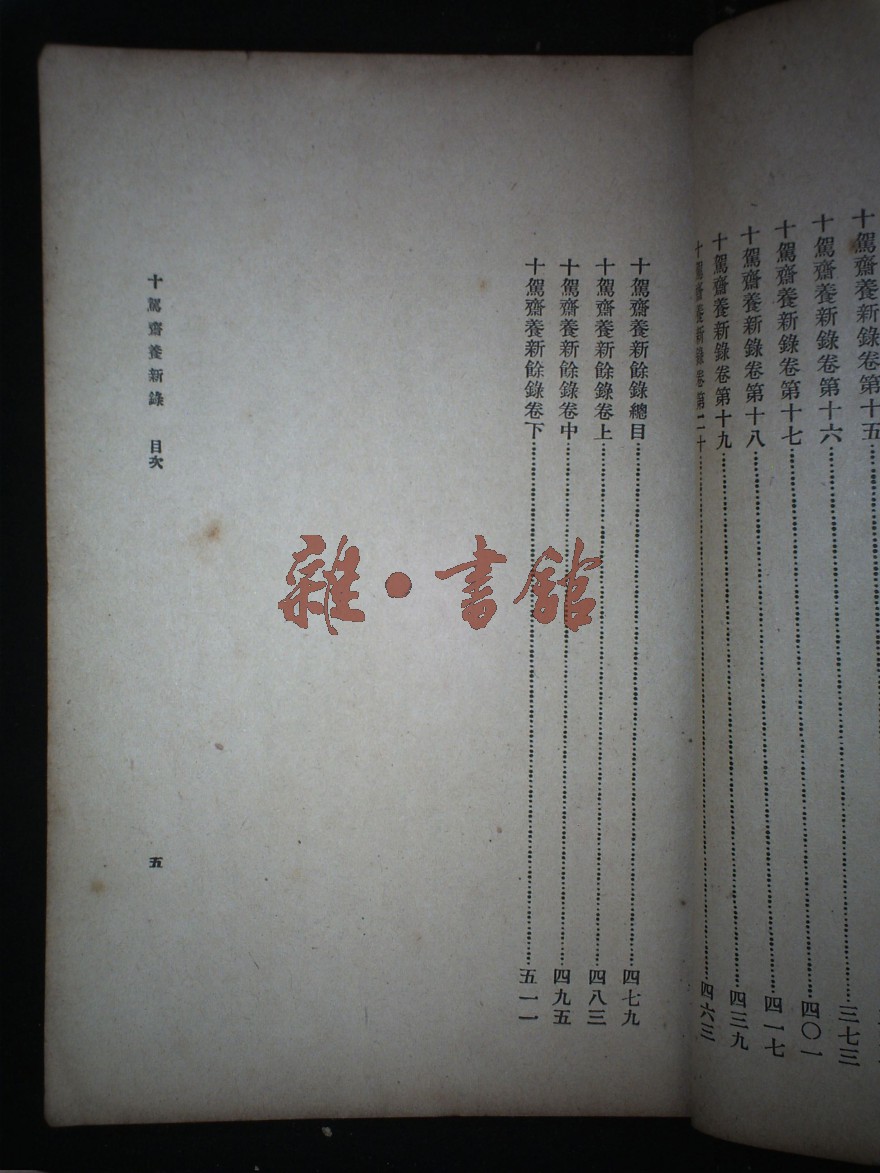 十駕齋養新錄卷第十五
十駕齋養新錄卷第十六……三七三
十駕齋養新錄卷第十七……四〇一
十駕齋養新錄卷第十八……四一七
十駕齋養新錄卷第十九……四三九
十駕齋養新錄卷第二十……四六三
十駕齋養新餘錄總目……四七九
十駕齋養新餘錄卷上……四八三
十駕齋養新餘錄卷中……四九五
十駕齋養新餘錄卷下……五一一
十駕齋養新錄 目次
五
雜·書館